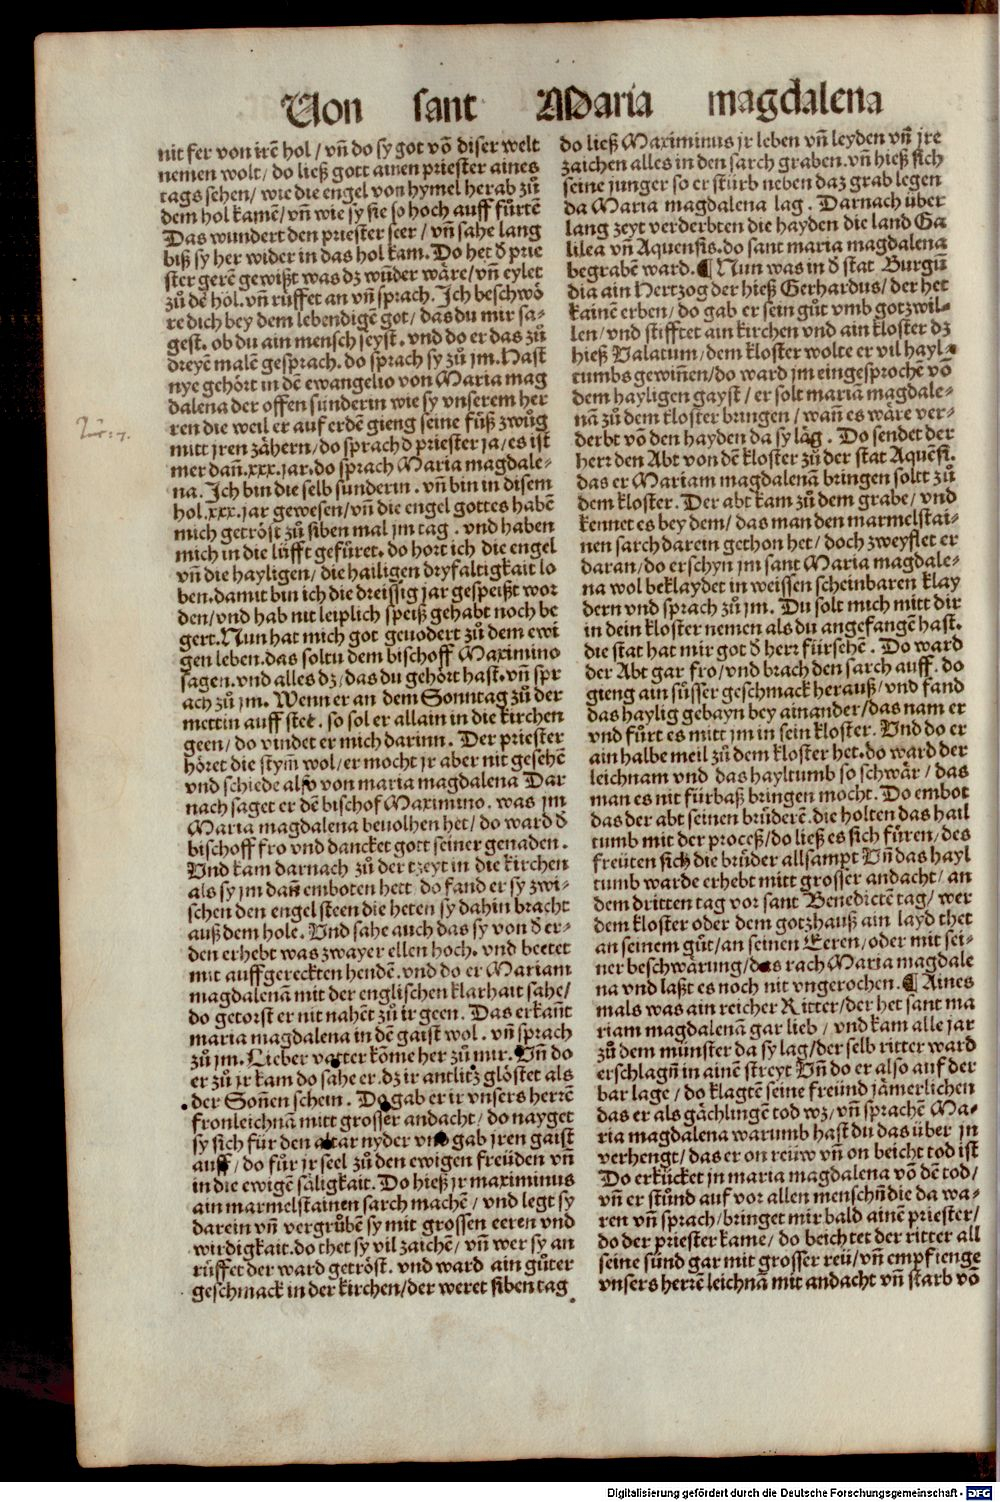 Von sant Maria magdalena
nit fer von irē hol / vñ do sy got vō diser welt
nemen wolt / do ließ gott ainen priester aines
tags sehen / wie die engel von hymel herab zů
dem hol kamē / vñ wie sy sie so hoch auff fůrtē
Das wundert den priester seer / vñ sahe lang
biß sy her wider in das hol kam. Do het d̕ prie
ster gerē gewißt was dz wūder wäre / vñ eylet
zů dē hol. vñ růffet an vñ sprach. Ich beschwö
re dich bey dem lebendigē got / das du mir sa-
gest. ob du ain mensch seyst. vnd do er das zů
dreyē malē gesprach. do sprach sy zů jm. Hast
nye gehört in dē ewangelio von Maria mag
dalena der offen sünderin wie sy vnserem her
ren die weil er auf erdē gieng seine fůß zwůg
mitt jren zähern / do sprach d̕ priester ja / es ist
mer dañ .xxx. jar. do sprach Maria magdale-
na. Ich bin die selb sünderin. vñ bin in disem
hol .xxx. jar gewesen / vñ die engel gottes habē
mich getröst zů siben mal jm tag. vnd haben
mich in die lüfft gefůret. do hort ich die engel
vñ die hayligen / die hailigen dryfaltigkait lo
ben. damit bin ich die dreissig jar gespeißt wor
den / vnd hab nit leiplich speiß gehabt noch be
gert. Nun hat mich got geuodert zů dem ewi
gen leben. das soltu dem bischoff Maximino
sagen. vnd alles dz / das du gehört hast. vñ spr
ach zů jm. Wenn er an dem Sonntag zů der
mettin auff stet. so sol er allain in die kirchen
geen / do vindet er mich darinn. Der priester
höret die stym̄ wol / er mocht jr aber nit gesehē
vnd schiede also von maria magdalena Dar
nach saget er dē bischof Maximino. was jm
Maria magdalena beuolhen het / do ward d̕
bischoff fro vnd dancket gott seiner genaden.
Vnd kam darnach zů der tzeyt in die kirchen
als sy jm dañ emboten hett do fand er sy zwi-
schen den engel steen die heten sy dahin bracht
auß dem hole. Vnd sahe auch das sy von d̕ er-
den erhebt was zwayer ellen hoch. vnd beetet
mit auffgereckten hendē. vnd do er Mariam
magdalenā mit der englischen klarhait sahe /
do getorst er nit nahēt zů ir geen. Das erkant
maria magdalena in dē gaist wol. vñ sprach
zů jm. Lieber vatter kōme her zů mir. Vñ do
er zů jr kam do sahe er. dz ir antlitz glöstet als
der Soñen schein. Do gab er ir vnsers herrē
fronleichnā mitt grosser andacht / do nayget
sy sich für den altar nyder vnd gab jren gaist
auff / do fůr jr seel zů den ewigen freüden vñ
in die ewigē säligkait. Do hieß jr maximinus
ain marmelstainen sarch machē / vnd legt sy
darein vñ vergrůbē sy mit grossen eeren vnd
wirdigkait. do thet sy vil zaichē / vñ wer sy an
růffet der ward getröst. vnd ward ain gůter
geschmack in der kirchen / der weret siben tag
do ließ Maximinus jr leben vñ leyden vñ jre
zaichen alles in den sarch graben. vñ hieß sich
seine junger so er stürb neben daz grab legen
da Maria magdalena lag. Darnach über
lang zeyt verderbten die hayden die land Ga
lilea vñ Aquensis. do sant maria magdalena
begrabē ward. ¶ Nun was in d̕ stat Burgū
dia ain Hertzog der hieß Gerhardus / der het
kainē erben / do gab er sein gůt vmb gotzwil-
len / vnd stifftet ain kirchen vnd ain kloster dz
hieß Valatum / dem kloster wolte er vil hayl
tumbs gewiñen / do ward jm eingesprochē vō
dem hayligen gayst / er solt mariā magdale-
nā zů dem kloster bringen / wañ es wäre ver-
derbt vō den hayden da sy läg. Do sendet der
herr den Abt von dē kloster zů der stat Aquēsi.
das er Mariam magdalenā bringen soltt zů
dem kloster. Der abt kam zů dem grabe / vnd
kennet es bey dem / das man den marmelstai-
nen sarch darein gethon het / doch zweyflet er
daran / do erschyn jm sant Maria magdale-
na wol beklaydet in weissen scheinbaren klay
dern vnd sprach zů jm. Du solt mich mitt dir
in dein kloster nemen als du angefangē hast.
die stat hat mir got d̕ herr fürsehē. Do ward
der Abt gar fro / vnd brach den sarch auff. do
gieng ain süsser geschmack herauß / vnd fand
das haylig gebayn bey ainander / das nam er
vnd fůrt es mitt jm in sein kloster. Vnd do er
ain halbe meil zů dem kloster het. do ward der
leichnam vnd das hayltumb so schwär / das
man es nit fürbaß bringen mocht. Do embot
das der abt seinen brůderē. die holten das hail
tumb mit der proceß / do ließ es sich fůren / des
freüten sich die brůder allsampt Vñ das hayl
tumb warde erhebt mitt grosser andacht / an
dem dritten tag vor sant Benedictē tag / wer
dem kloster oder dem gotzhauß ain layd thet
an seinem gůt / an seinen Eeren / oder mit sei-
ner beschwärung / das rach Maria magdale
na vnd laßt es noch nit vngerochen. ¶ Aines
mals was ain reicher Ritter / der het sant ma
riam magdalenā gar lieb / vnd kam alle jar
zů dem münster da sy lag / der selb ritter ward
erschlagñ in ainē streyt Vñ do er also auf der
bar lage / do klagtē seine freünd jämerlichen
das er als gächlingē tod wz / vñ sprachē Ma-
ria magdalena warumb hast du das über jn
verhengt / das er on reüw vñ on beicht tod ist
Do erkücket jn maria magdalena vō dē tod /
vñ er stůnd auf vor allen menschñ die da wa-
ren vñ sprach / bringet mir bald ainē priester /
do der priester kame / do beichtet der ritter all
seine sünd gar mit grosser reü / vñ empfienge
vnsers herrē leichnā mit andacht vñ starb vō
Digitalisierung gefördert durch die Deutsche Forschungsgemeinschaft - DFG